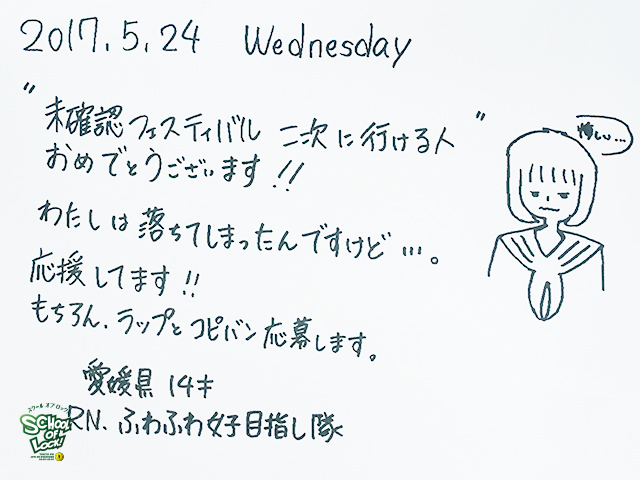 2017.5.24 Wednesday
"未確認フェスティバル 二次に行ける人"
おめでとうございます!!
悔しい…
わたしは落ちてしまったんですけど…。
応援してます!!
もちろん、ラップとコピバン応募します。
愛媛県 14才
RN. ふわふわ女子目指し隊
スクール オブ ロック!
SCHOOL OF LOCK!